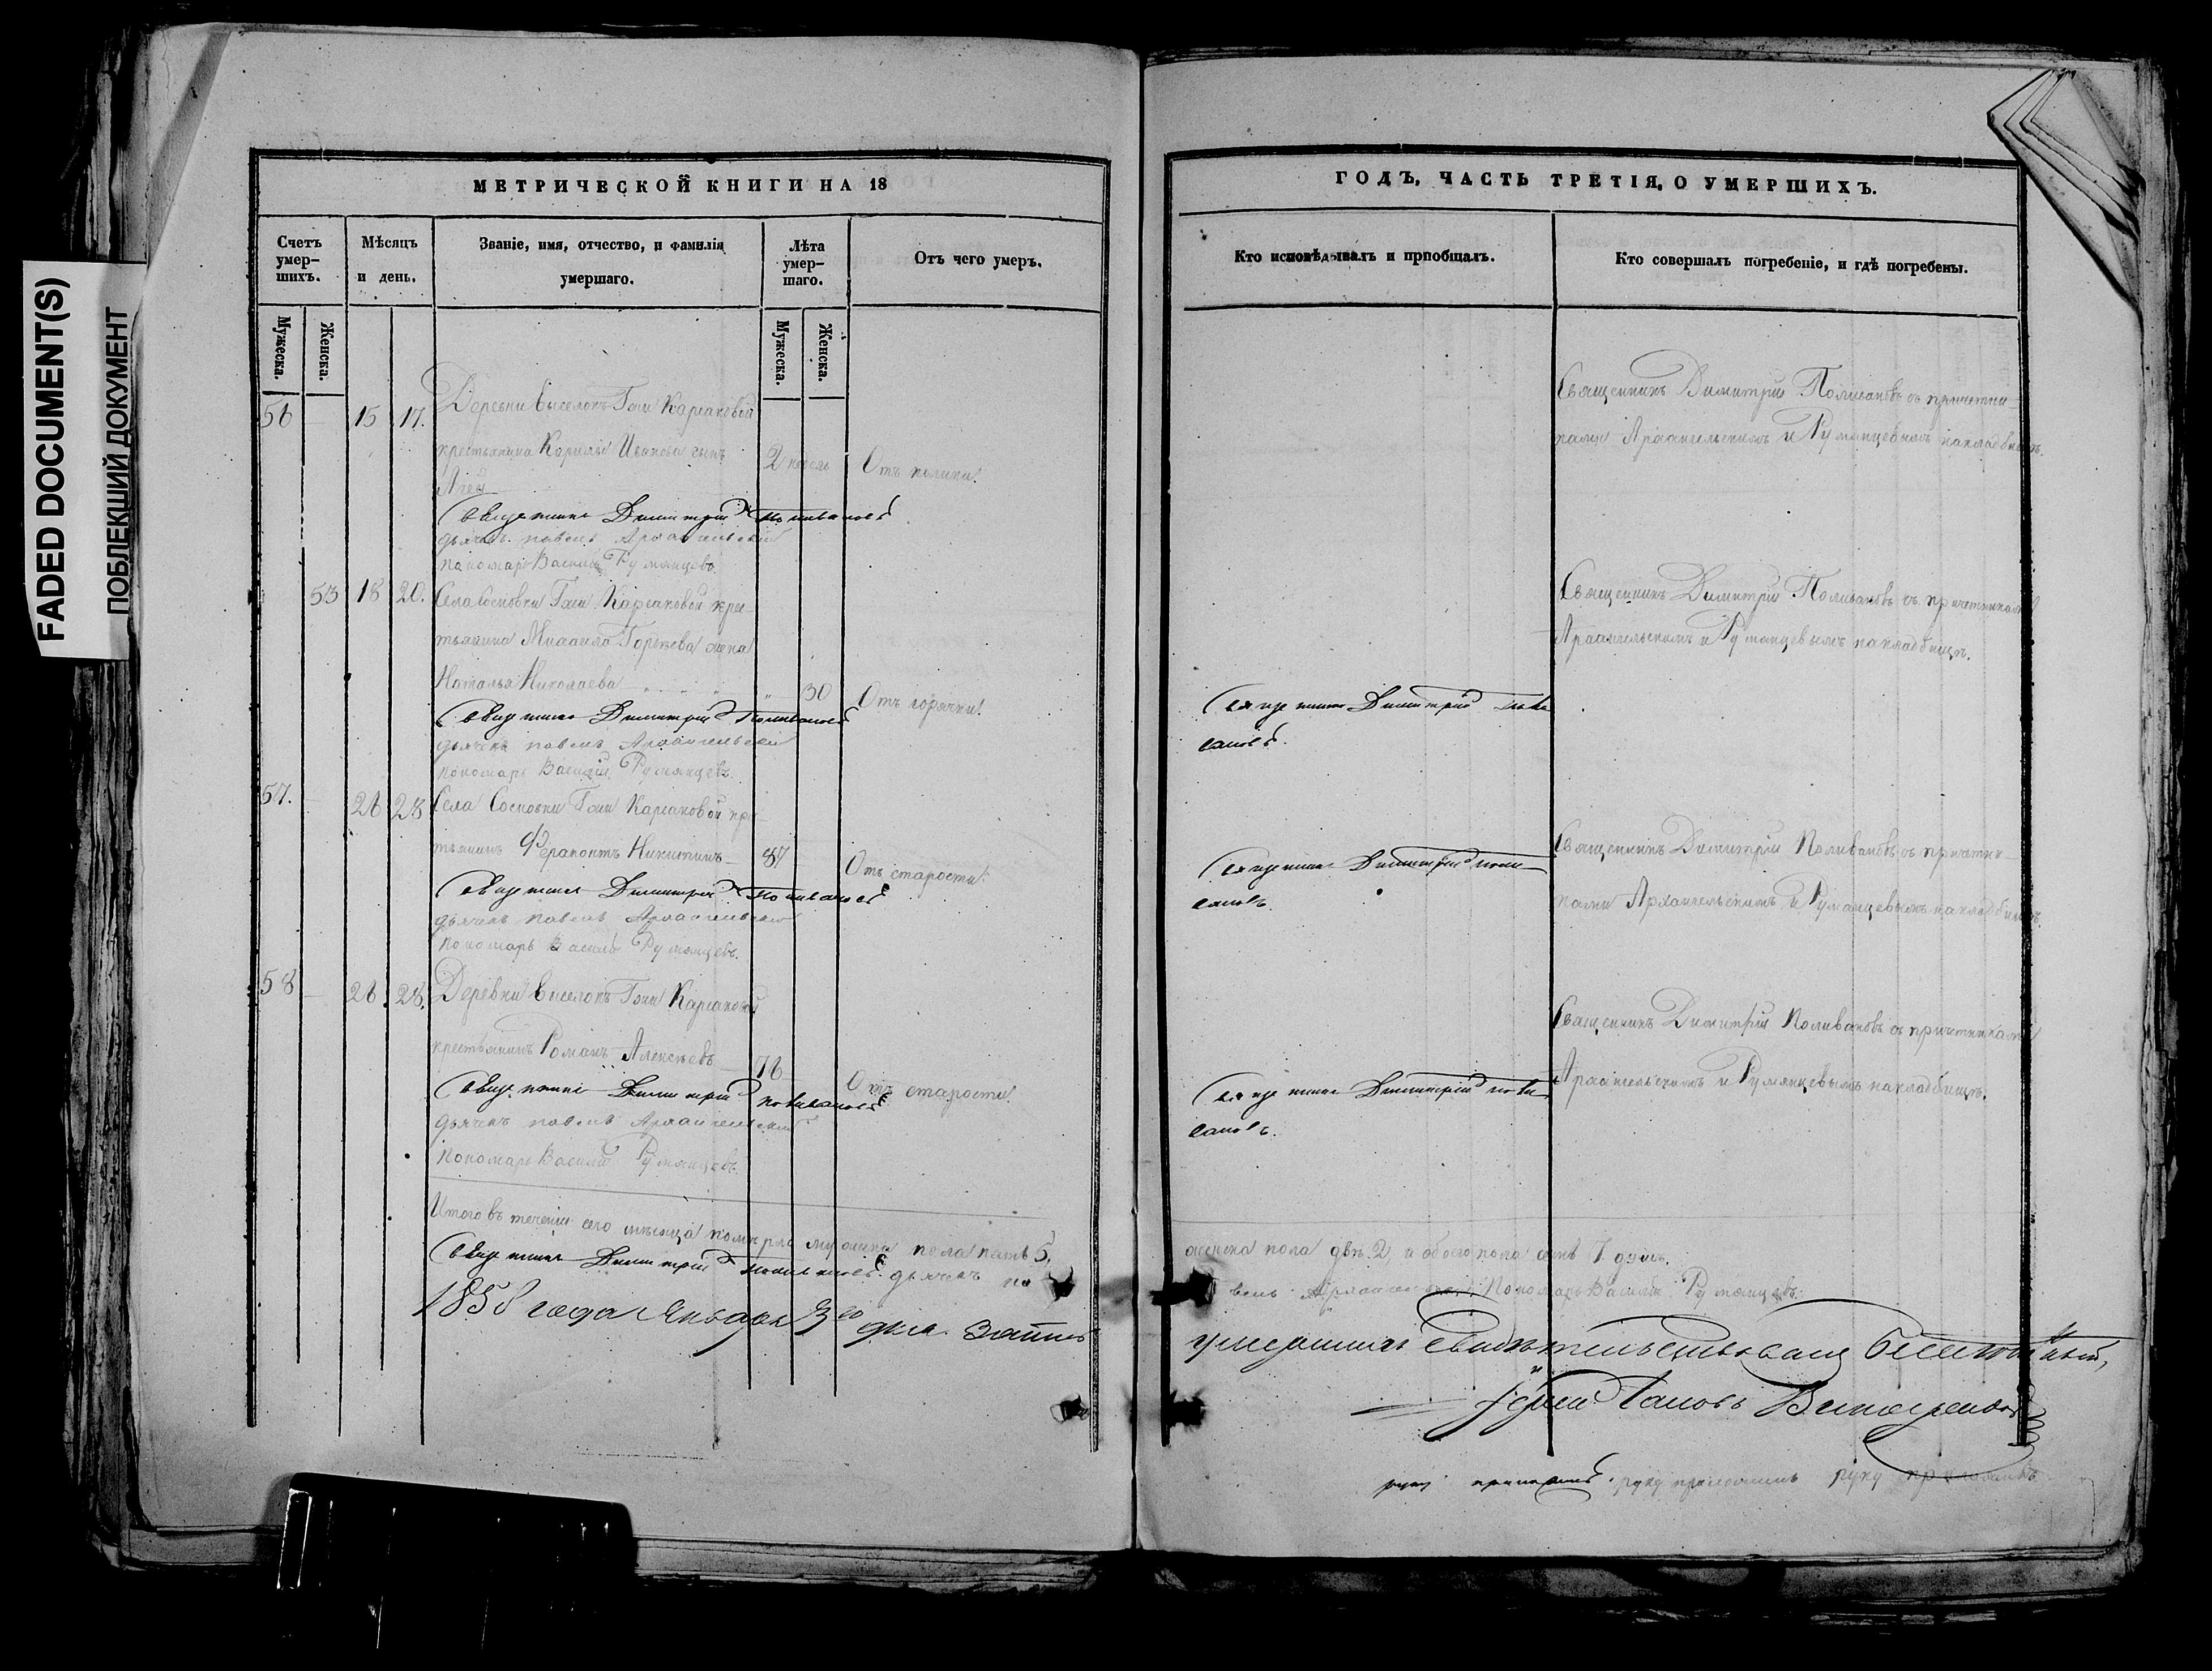 FADED DOCUMENT(S)
ПОБЛЕКШИЙ ДОКУМЕНТ
МЕТРИЧЕСКОЙ КНИГИ НА 18
Счетъ умер-шихъ.
Мѣсяцъ и день.
Званіе, имя, отчество, и фамилія умершаго.
Лѣта умер-шаго.
Отъ чего умеръ.
Мужеска.
Женска.
Мужеска.
Женска.
56 15 17. Деревни Выселокъ Гжи Каргаковой
крестьянина Кирилы Иванова сынъ 2 недель Отъ колики.
Священникъ Димитрій Поливановъ
дьячекъ Павелъ Архангельскій
пономарь Василій Румянцевъ
53 18 20. Села Сосновки Гжи Каргаковой крес
тьянина Михаила Горѣева жена
Наталья Николаева 30 Отъ горячки.
Священникъ Димитрій Поливановъ
дьячекъ Павелъ Архангельскій
пономарь Василій Румянцевъ.
57. 26 28 Села Сосновки Гжи Каргаковой кре
тьянинъ Ферапонтъ Никитинъ 87 Отъ старости.
Священникъ Димитрій Поливановъ
дьячекъ Павелъ Архангельскій
пономарь Василій Румянцевъ.
58 26. 28. Деревни Выселокъ Гжи Каргаковой
крестьянинъ Романъ Алексѣевъ 76 Отъ старости.
Священникъ Димитрій Поливановъ
дьячекъ Павелъ Архангельскій
пономарь Василій Румянцевъ.
Итого въ теченіи сего мѣсяца померло мужеска пола пять 5.
Священникъ Димитрій Поливановъ дьячекъ Па
1858 года Января 3го дня запись
ГОДЪ, ЧАСТЬ ТРЕТІЯ, О УМЕРШИХЪ.
Кто исповѣдывалъ и пріобщалъ.
Кто совершалъ погребеніе, и гдѣ погребены.
Священникъ Димитрій Поливановъ съ причетни
ками Архангельскимъ и Румянцевымъ на кладбищѣ.
Священникъ Димитрій Поливановъ съ причетниками
Архангельскимъ и Румянцевымъ на кладбищѣ.
Священникъ Димитрій Поли
вановъ.
Священникъ Димитрій Поливановъ съ причетни
ками Архангельскимъ и Румянцевымъ на кладбищѣ.
Священникъ Димитрій Поли
вановъ.
Священникъ Димитрій Поливановъ съ причетниками
Архангельскимъ и Румянцевымъ на кладбищѣ.
Священникъ Димитрій Поли
вановъ.
женска пола двѣ 2 и обоего пола семь 7 душъ.
велъ Архангельскій Пономарь Василій Румянцевъ.
умершихъ свидѣтельствовалъ Благочинный,
Іерей Іаковъ Виноградовъ
руку приложилъ. руку приложилъ руку приложилъ